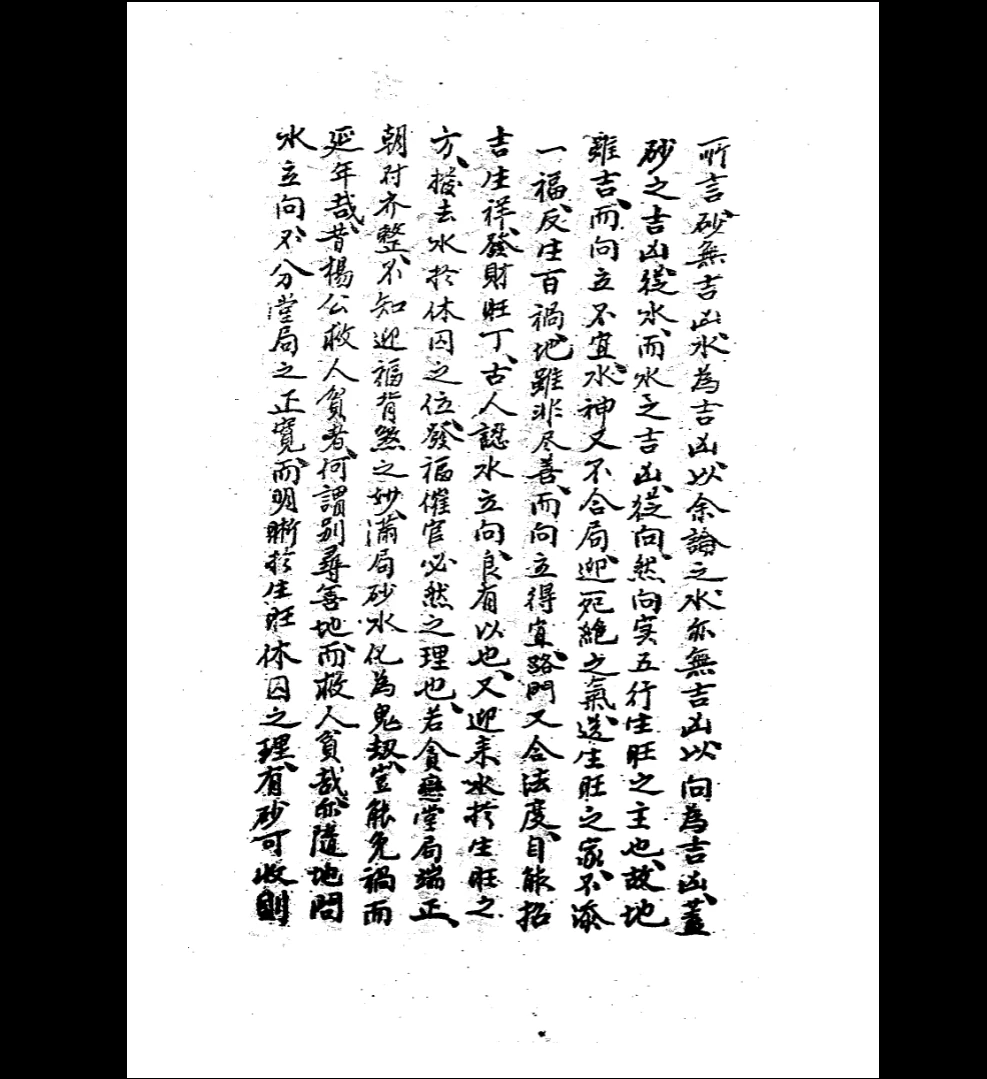 所言砂無吉凶水為吉凶以余論之水亦無吉凶以向為吉凶蓋
砂之吉凶從水而水之吉凶從向然向实五行生旺之主也故地
雖吉而向立不宜水神又不合局迎死絕之氣送生旺之家不添
一福反生百禍地雖非尽善而向立得宜路門又合法度自能招
吉生祥發財旺丁古人認水立向良有以也又迎来水於生旺之
方撥去水於休囚之位發福催官必然之理也若貪戀堂局端正
朝対齐整不知迎福背煞之妙滿局砂水化為鬼刼豈能免禍而
延年哉昔楊公救人貧者何謂别尋善地而救人貧哉亦隨地問
水立向不分堂局之正寬而明晰於生旺休囚之理有砂可收則